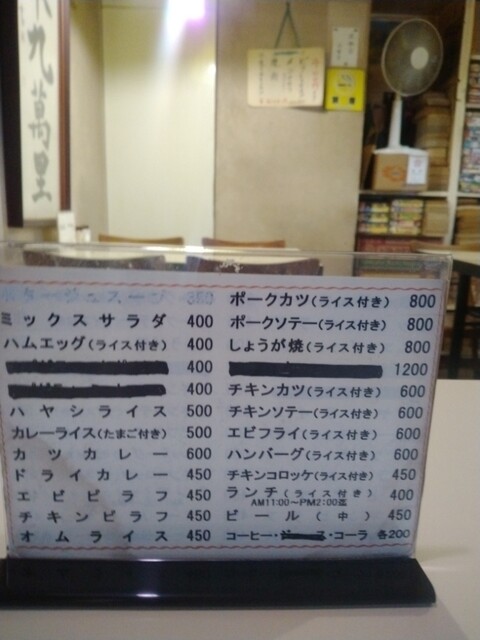 九萬里
ポタージュスープ 350
ミックスサラダ 400
ハムエッグ(ライス付き) 400
400
400
ハヤシライス 500
カレーライス(たまご付き) 500
カツカレー 600
ドライカレー 450
エビピラフ 450
チキンピラフ 450
オムライス 450
ポークカツ(ライス付き) 800
ポークソテー(ライス付き) 800
しょうが焼(ライス付き) 800
1200
チキンカツ(ライス付き) 600
チキンソテー(ライス付き) 600
エビフライ(ライス付き) 600
ハンバーグ(ライス付き) 600
チキンコロッケ(ライス付き) 450
ランチ(ライス付き) 400
AM11:00〜PM2:00迄
ビール(中) 450
コーヒー・・コーラ 各200